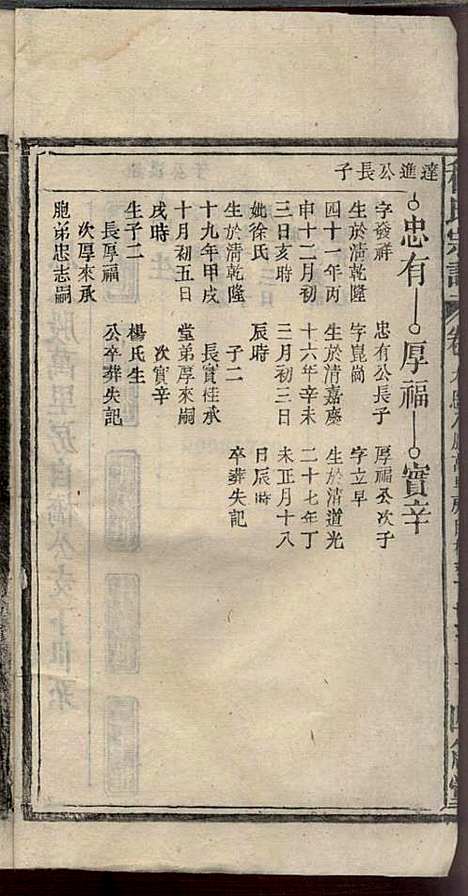 氏宗譜
達進公長子
忠有
厚福
實辛
字發祥
生於清乾隆
四十一年丙
申十二月初
三日亥時
妣徐氏
生於清乾隆
十九年甲戌
十月初五日
戌時
生子二
長厚福
次厚來承
胞弟忠志嗣
忠有公長子
字崑崗
生於清嘉慶
十六年辛未
三月初三日
辰時
子二
長實桂承
堂弟厚來嗣
次實辛
楊氏生
公卒葬失記
厚福公次子
字立早
生於清道光
二十七年丁
未正月十八
日辰時
卒葬失記